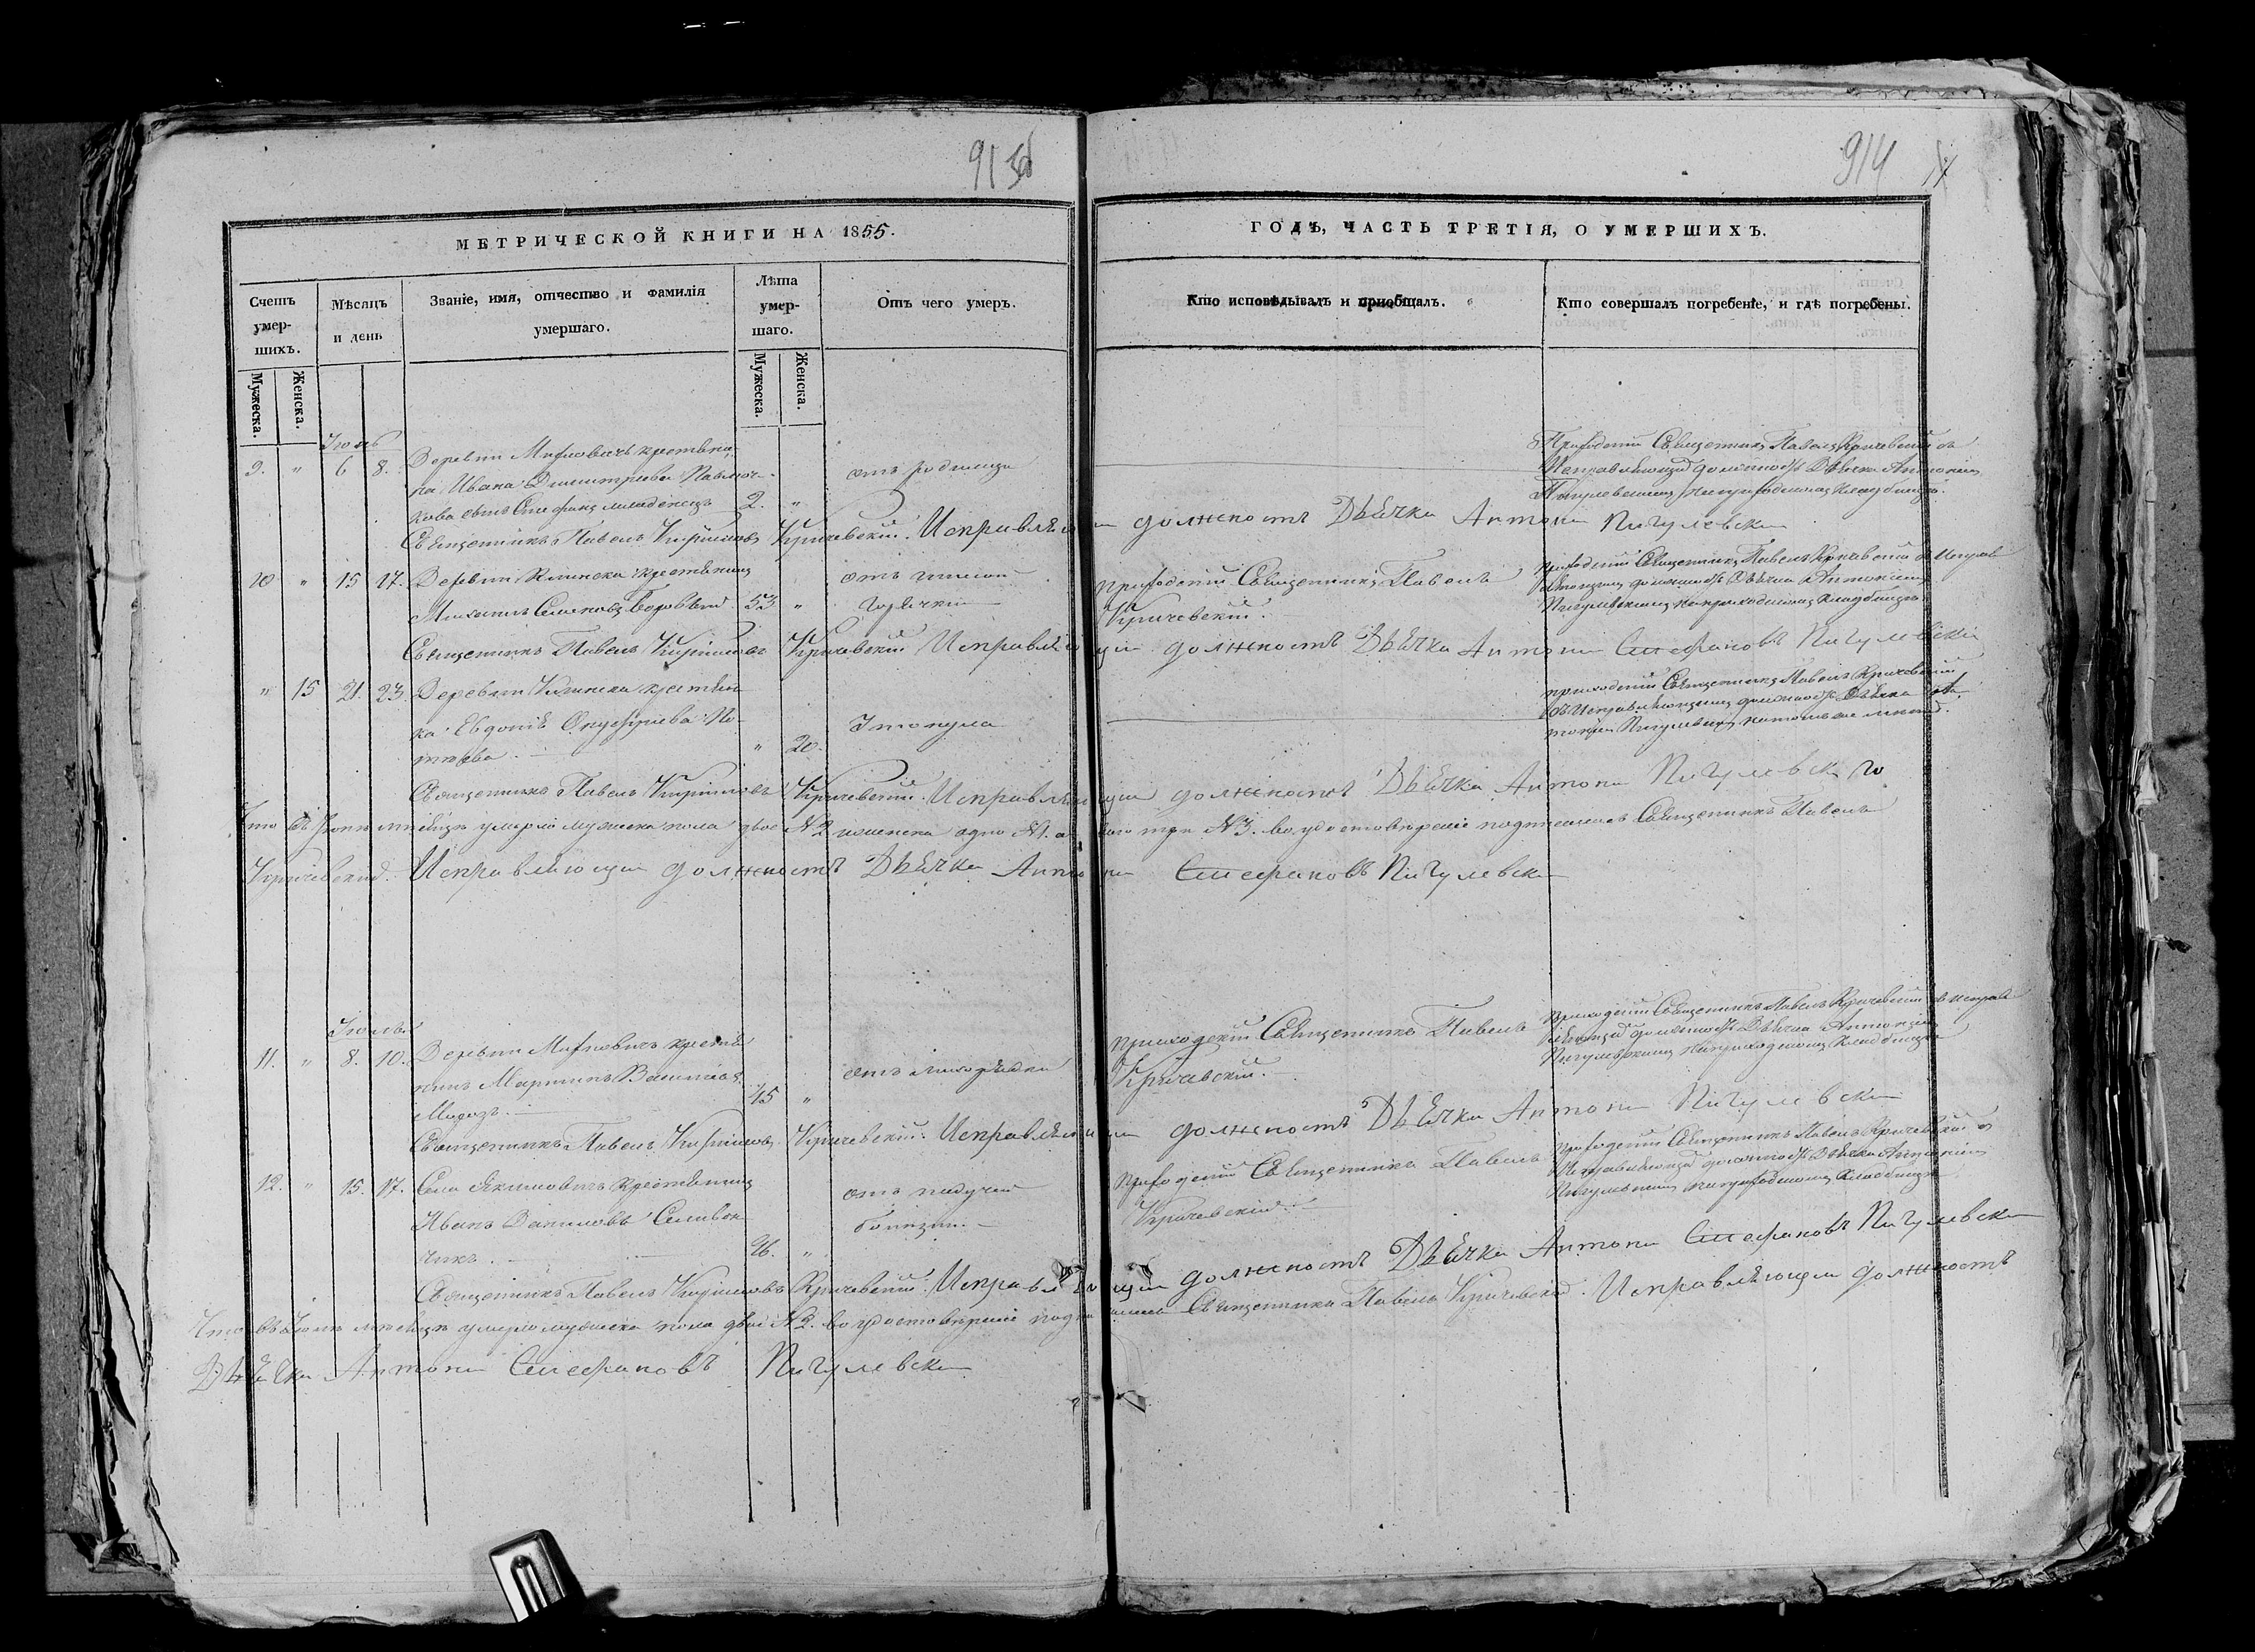 913об
914
МЕТРИЧЕСКОЙ КНИГИ НА 1855.
ГОДЪ, ЧАСТЬ ТРЕТІЯ, О УМЕРШИХЪ.
Счетъ умер-шихъ.
Мѣсяцъ и день
Званіе, имя, отчество и фамилія умершаго.
Лѣта умер-шаго.
Отъ чего умеръ.
Кто исповѣдывалъ и приобщалъ.
Кто совершалъ погребеніе, и гдѣ погребены.
Мужеска.
Женска.
Мужеска.
Женска.
Іюнь
9. " 6 8. Деревни крестьяни-
на Ивана Димитріева
сынъ Стефанъ младенецъ 2. "
отъ родимца
Приходскій Священникъ Павелъ Кричевскій съ
Исправляющимъ должность Дьячка Антоніемъ
Пигулевскимъ на приходскомъ кладбищѣ.
Священникъ Павелъ Кирилловъ Кричевскій. Исправляющій должность Дьячка Антоній Пигулевскій
10 " 15 17. Деревни крестьянинъ
Михаилъ 53 "
отъ
горячки
приходскій Священникъ Павелъ
Кричевскій.
приходскій Священникъ Павелъ Кричевскій съ Исправ
ляющимъ должность Дьячка Антоніемъ
Пигулевскимъ на приходскомъ кладбищѣ
Священникъ Павелъ Кирилловъ Кричевскій Исправляющій должность Дьячка Антоній Стефановъ Пигулевскій
" 15 21. 23. Деревни крестьян
ка Евдокія Онуфріева
" 20.
Утонула
приходскій Священникъ Павелъ Кричевскій
съ Исправляющимъ должность Дьячка Ан
тоніемъ Пигулевскимъ
Священникъ Павелъ Кирилловъ Кричевскій. Исправляющій должность Дьячка Антоній Пигулевскій
Что въ Іюнѣ мѣсяцѣ умерло мужеска пола двое №2 женска одно №1. а всего три №3. во удостовѣреніе подписался Священникъ Павелъ
Кричевскій. Исправляющій должность Дьячка Антоній Стефановъ Пигулевскій
Іюль
11. " 8. 10. Деревни крестья
нинъ Мартинъ
Морозъ. 45 "
отъ лихорадки
приходскій Священникъ Павелъ
Кричевскій.
приходскій Священникъ Павелъ Кричевскій съ исправ
ляющимъ должность Дьячка Антоніемъ
Пигулевскимъ на приходскомъ кладбищѣ
Священникъ Павелъ Кирилловъ Кричевскій. Исправляющій должность Дьячка Антоній Пигулевскій
12. " 15. 17. Села Якимовичъ крестьянинъ
Иванъ
чикъ. 26. "
отъ падучей
болѣзни.
приходскій Священникъ Павелъ
Кричевскій.
приходскій Священникъ Павелъ Кричевскій съ
Исправляющимъ должность Дьячка Антоніемъ
Пигулевскимъ на приходскомъ кладбищѣ
Священникъ Павелъ Кирилловъ Кричевскій. Исправляющій должность Дьячка Антоній Стефановъ Пигулевскій
Что въ Іюлѣ мѣсяцѣ умерло мужеска пола двое №2. во удостовѣреніе подписался Священникъ Павелъ Кричевскій. Исправляющій должность
Дьячка Антоній Стефановъ Пигулевскій